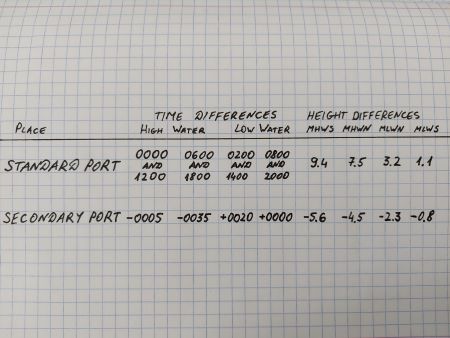 TIME DIFFERENCES HEIGHT DIFFERENCES
PLACE HIGH WATER LOW WATER MHWS MHWN MLWN MLWS
0000 0600 0200 0800
STANDARD PORT AND AND AND AND 9.4 7.5 3.2 1.1
1200 1800 1400 2000
SECONDARY PORT -0005 -0035 +0020 +0000 -5.6 -4.5 -2.3 -0.8